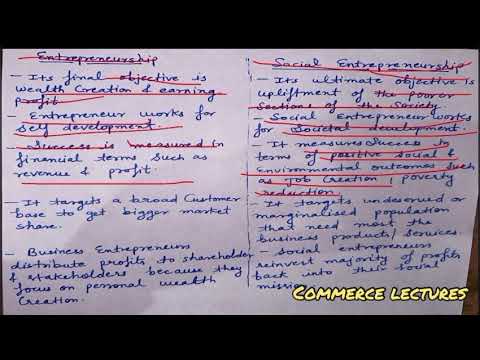 Entrepreneurship
- Its final objective is
wealth Creation & earning
profit.
- Entrepreneur works for
self development.
- Success is measured in
financial terms such as
revenue & profit.
- It targets a broad Customer
base to get bigger market
share.
- Business Entrepreneurs
distribute profits to shareholder
& stakeholders because they
focus on personal wealth
Creation.
Social Entrepreneurship
- Its ultimate objective is
upliftment of the poorer
Sections of the Society.
- Social Entrepreneur works
for Societal development.
- It measures Success in
terms of positive social &
Environmental outcomes such
as Job Creation, poverty
reduction.
- It targets undeserved or
marginalised population
that need most the
business products/services.
- Social entrepreneurs
reinvert majority of profits
back into their social
mission
COMMERCE LECTURES